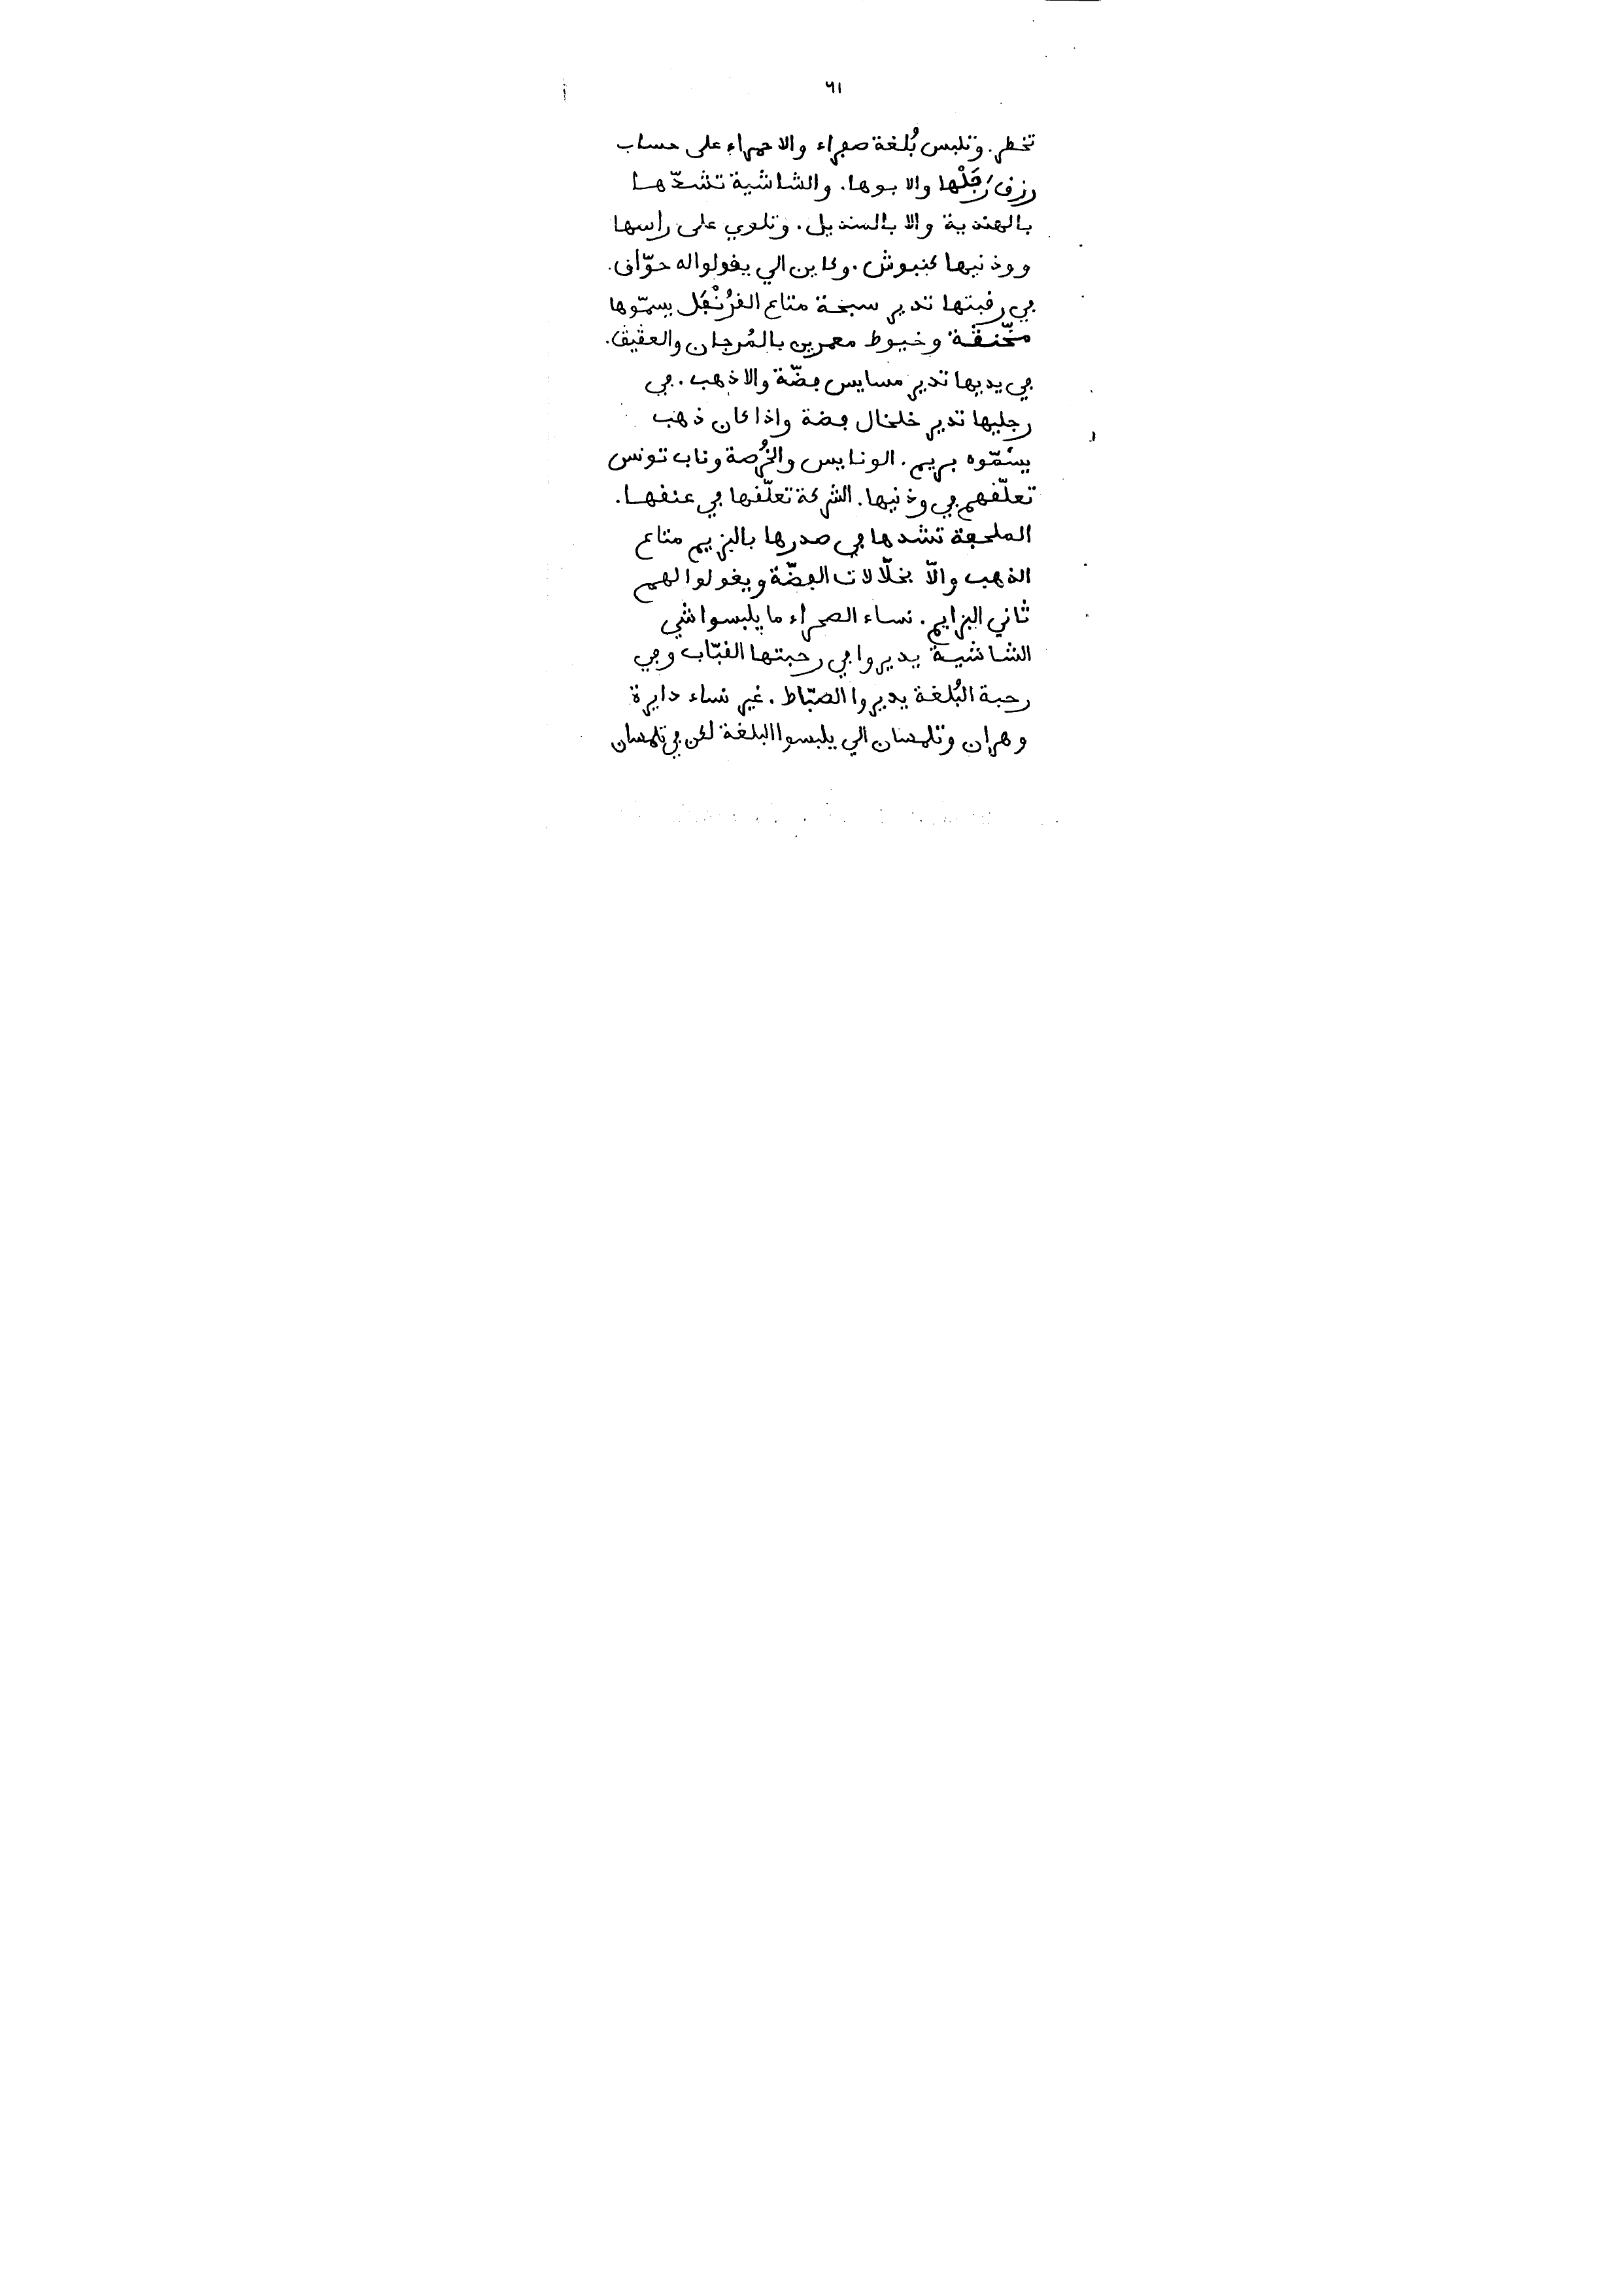 ٦١
تخطر. وتلبس بُلغة صفراء والا حمراء على حساب
رزق رَجَلْها والا بوها. والشاشية تشدّها
بالهندية والا بالمنديل. وتلوي على راسها
ووذنيها كنبوش. وكاين الي يقولوا له حوّاق.
في رقبتها تدير سبحة متاع القرُنْفَل يسمّوها
مخّنقة وخيوط معمرين بالمُرجان والعقيق.
في يديها تدير مسايس فضّة والا ذهب. في
رجليها تدير خلخال فضة واذا كان ذهب
يسَمّوه بريم. الونايس والخُرصة وناب تونس
تعلّقهم في وذنيها. الشركة تعلّقها في عنقها.
الملحفة تشدها في صدرها بالبزيم متاع
الذهب والّا بخلّالات الفضّة ويقولوا لهم
ثاني البزايم. نساء الصحراء ما يلبسوا شي
الشاشية يديروا في رحبتها القبّاب وفي
رحبة البُلغة يديروا الصبّاط. غير نساء دايرة
وهران وتلمسان الي يلبسوا البلغة لكن في تلمسان